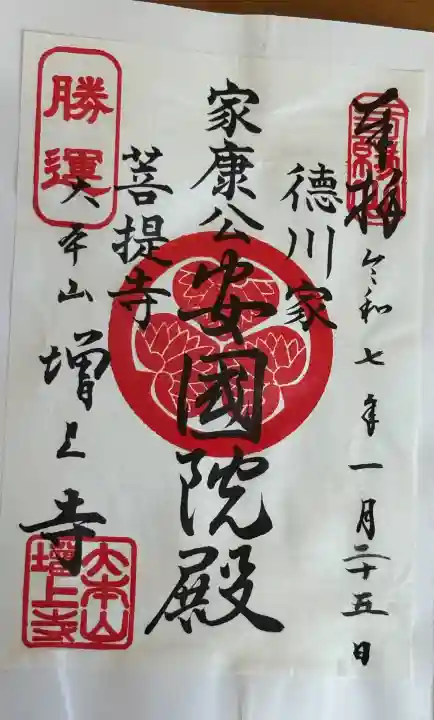 奉拝
令和七年一月二十五日
徳川家
家康公
安國院殿
菩提寺
勝運
大本山
増上寺
大本山
増上寺